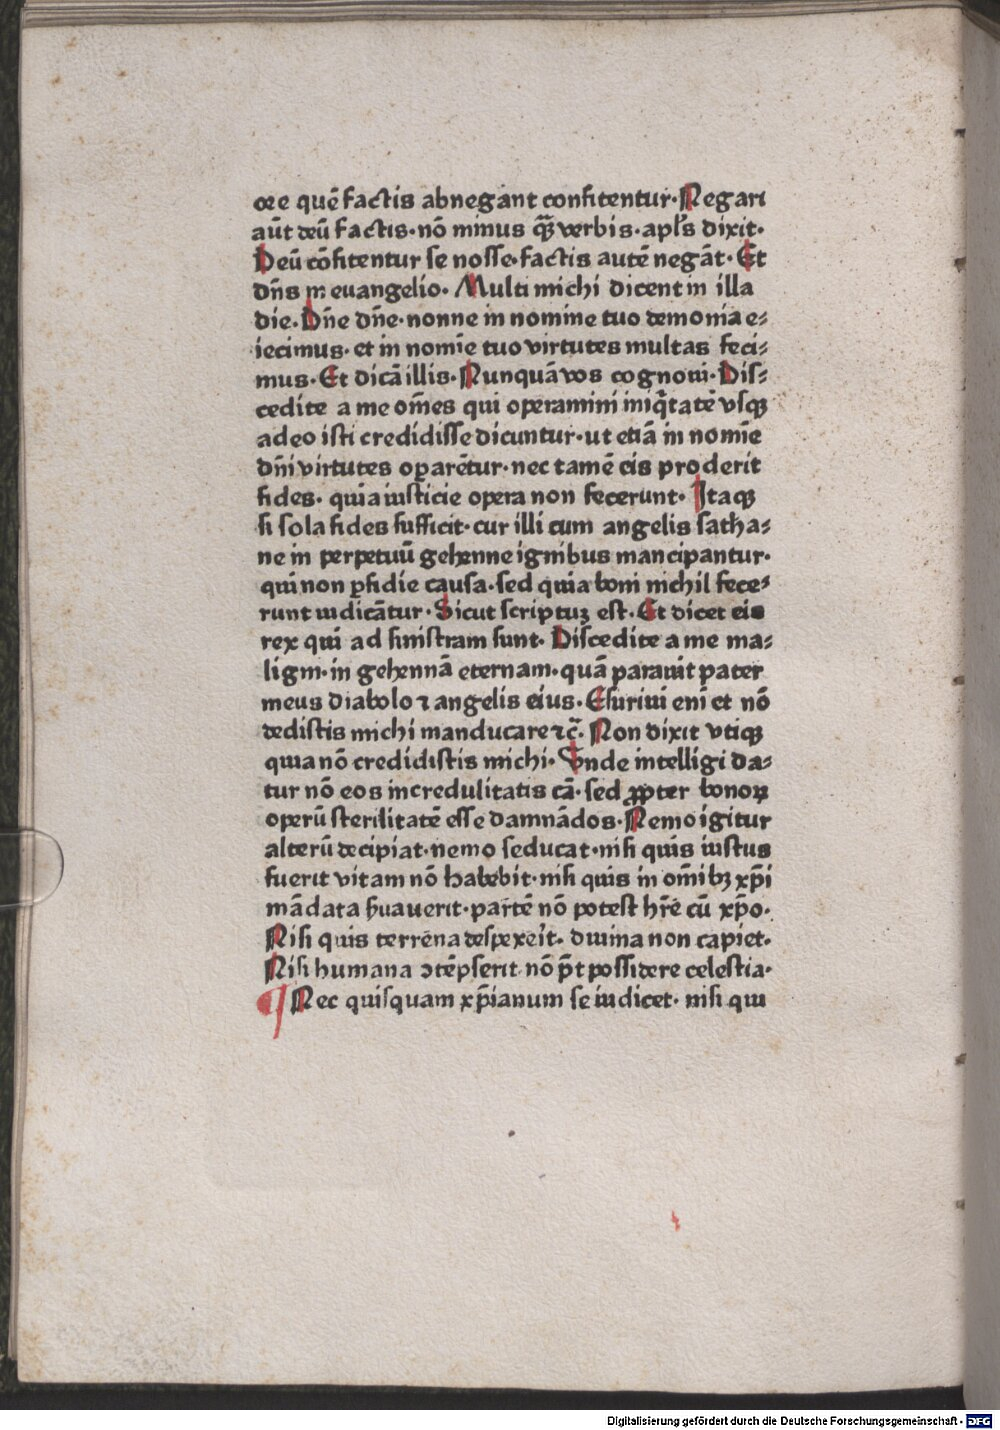 ore quē factis abnegant confitentur·Negari
aūt deū factis·nō minus qꝫ̄ verbis·apl's dixit·
Deū cōfitentur se nosse·factis autē negāt·Et
dn̄s in euangelio·Multi michi dicent in illa
die·Dn̄e dn̄e·nonne in nomine tuo demonia e⸗
iecimus·et in nomīe tuo virtutes multas feci⸗
mus·Et dicā illis·Nunquā vos cognoui·Dis⸗
cedite a me om̄es qui operamini iniq̄tatē vsqꝫ
adeo isti credidisse dicuntur·ut etiā in nomīe
dn̄i virtutes oꝑarētur·nec tamē eis proderit
fides·quia iusticie opera non fecerunt·Itaqꝫ
si sola fides sufficit·cur illi cum angelis satha⸗
ne in perpetuū gehenne ignibus mancipantur·
qui non ꝑfidie causa·sed quia boni nichil fece⸗
runt iudicātur·Sicut scriptuꝫ est·Et dicet eis
rex qui ad sinistram sunt·Discedite a me ma⸗
ligni·in gehennā eternam·quā parauit pater
meus diabolo ⁊ angelis eius·Esuriui eni et nō
dedistis michi manducare ⁊c̄·Non dixit vtiqꝫ
quia nō credidistis michi·Vnde intelligi da⸗
tur nō eos incredulitatis cā·sed ꝓpter bonoꝝ
operū sterilitatē esse damnādos·Nemo igitur
alterū decipiat·nemo seducat·nisi quis iustus
fuerit vitam nō habebit·nisi quis in om̄ibꝫ xp̄i
mādata ẜuauerit·partē nō potest hr̄e cū xp̄o·
Nisi quis terrena despexeit·diuina non capiet·
Nisi humana ↄtēpserit nō p̄t possidere celestia·
¶ Nec quisquam xp̄ianum se iudicet·nisi qui
Digitalisierung gefördert durch die Deutsche Forschungsgemeinschaft - DFG